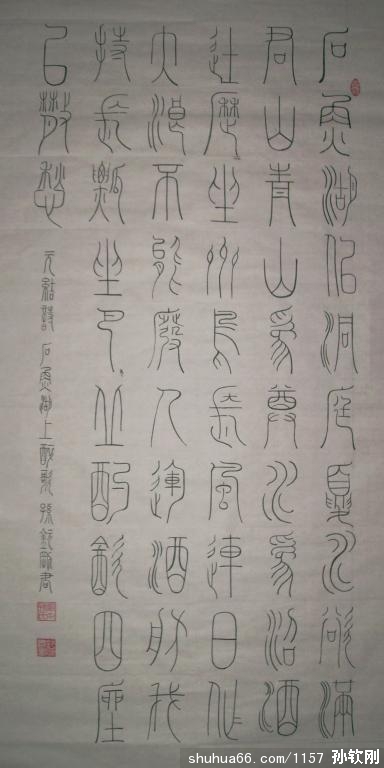 石魚湖佀洞庭夏水欲滿
君山青山為尊水為沼酒
徒歷〻坐州島長風連日作
大浪不能廢人運酒舫我
持長瓢坐巴丘酌飲四座
以散愁
元結詩 石魚湖上醉歌 孫欽剛書
shuhua66.com/1157 孙钦刚